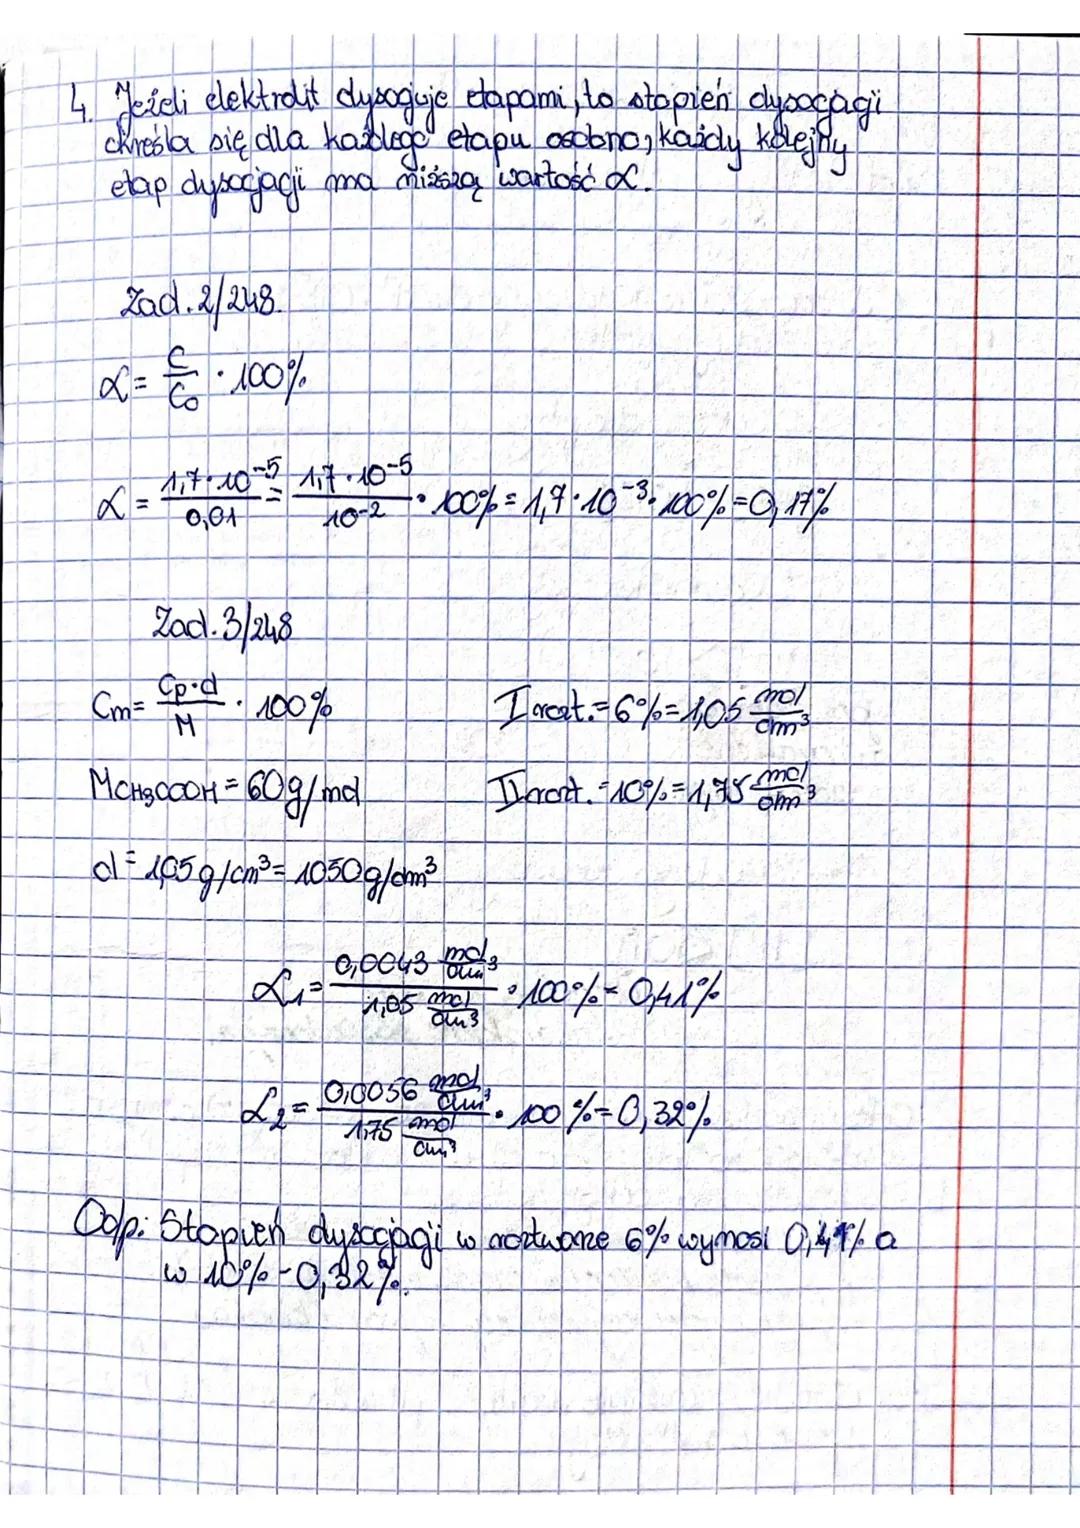 4. Jeżeli elektrolit dysocjuje etapami, to stopień dysocjacji
określa się dla każdego etapu osobno, każdy kolejny
etap dysocjacji ma niższą wartość α.
Zad. 2/248.
α = C/C₀ · 100%
α = 1,7·10⁻⁵/0,01 = 1,7·10⁻⁵/10⁻² · 100% = 1,7·10⁻³·100% = 0,17%
Zad. 3/248
Cm = Cp·d/M · 100%
I rozt. = 6% = 1,05 mol/dm³
MCH₃COOH = 60g/mol
II rozt. = 10% = 1,75 mol/dm³
d = 1,05 g/cm³ = 1050 g/dm³
α₁ = 0,0043 mol/dm³ / 1,05 mol/dm³ · 100% = 0,41%
α₂ = 0,0056 mol/dm³ / 1,75 mol/dm³ · 100% = 0,32%
Odp.: Stopień dysocjacji w roztworze 6% wynosi 0,41% a
w 10% - 0,32%.